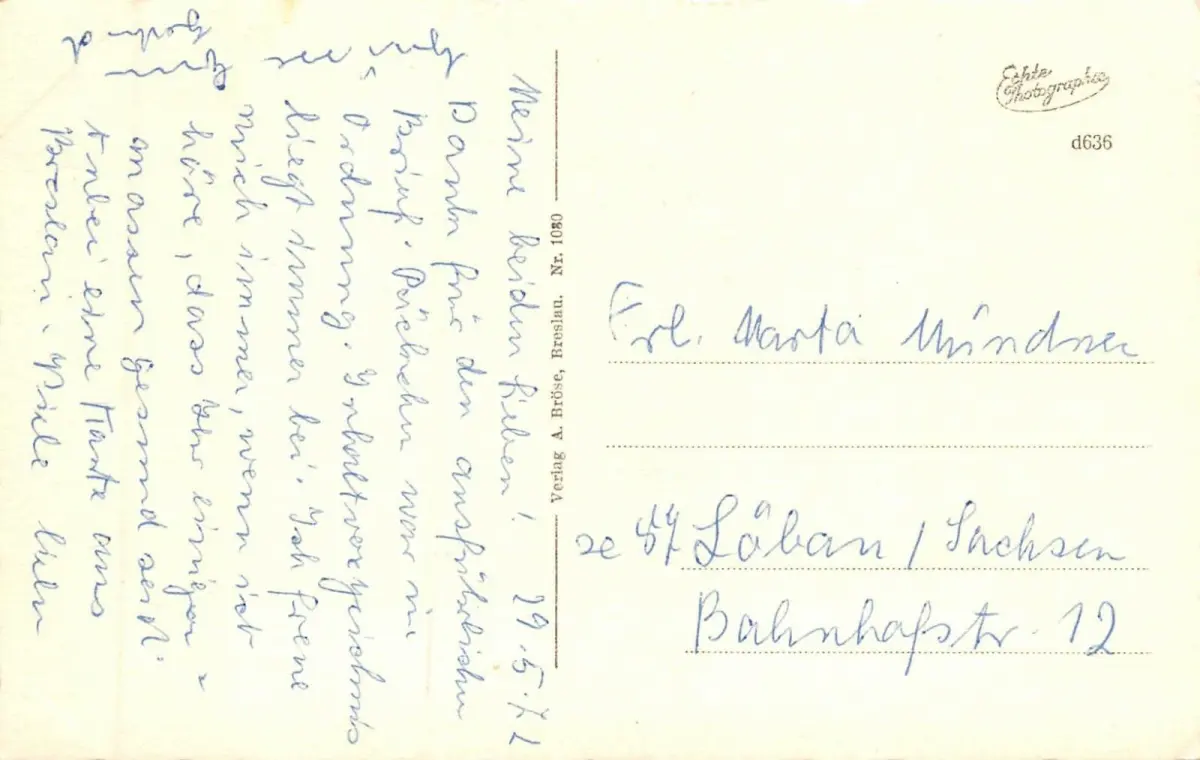 Meine beiden Lieben! 29.5.71
Dank für den ausführlichen
Brief. Päckchen war in
Ordnung. Inhaltverzeichnis
liegt immer bei. Ich freue
mich immer, wenn ich
höre, dass Ihr einiger-
massen gesund seid.
Anbei eine Karte aus
Breslau. Viele liebe
Verlag A. Bröse, Breslau. Nr. 1080
Echte
Photographie
d636
Frl. Marta Mündner
87 Löbau / Sachsen
Bahnhofstr. 12